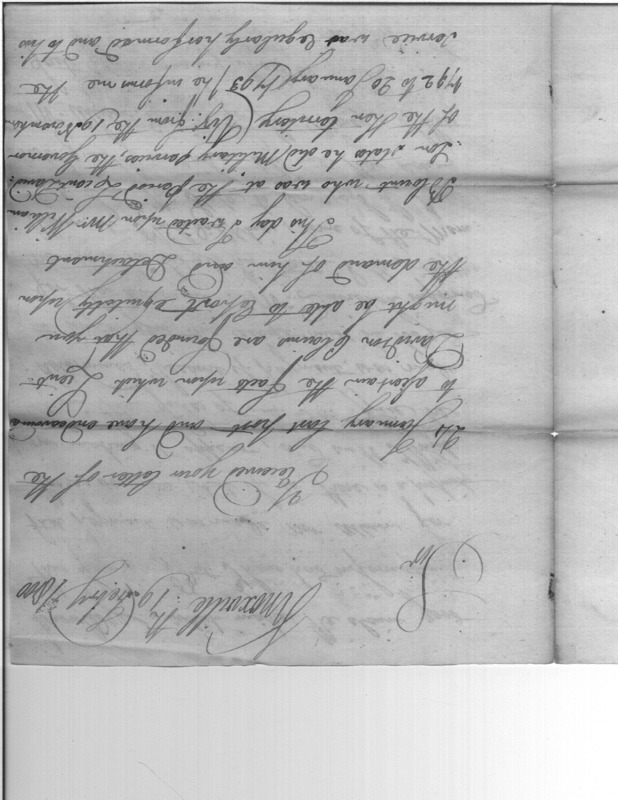 Knoxville Tn. 19 Febry 1800
Sir
I Received your letter of the
24 January last post and have endeavored
to ascertain the facts upon which Lieut.
Davidson Claims are founded that you
might be able to report equitably upon
the demand of him and Detachment
This day I waited upon Mr. William
Blount who was at the period Lieut David-
son states he did Military service, the Governor
of the then territory (Viz. from the 19 November
1792 to 20 January 1793) he informs me the
service was regularly performed and to his